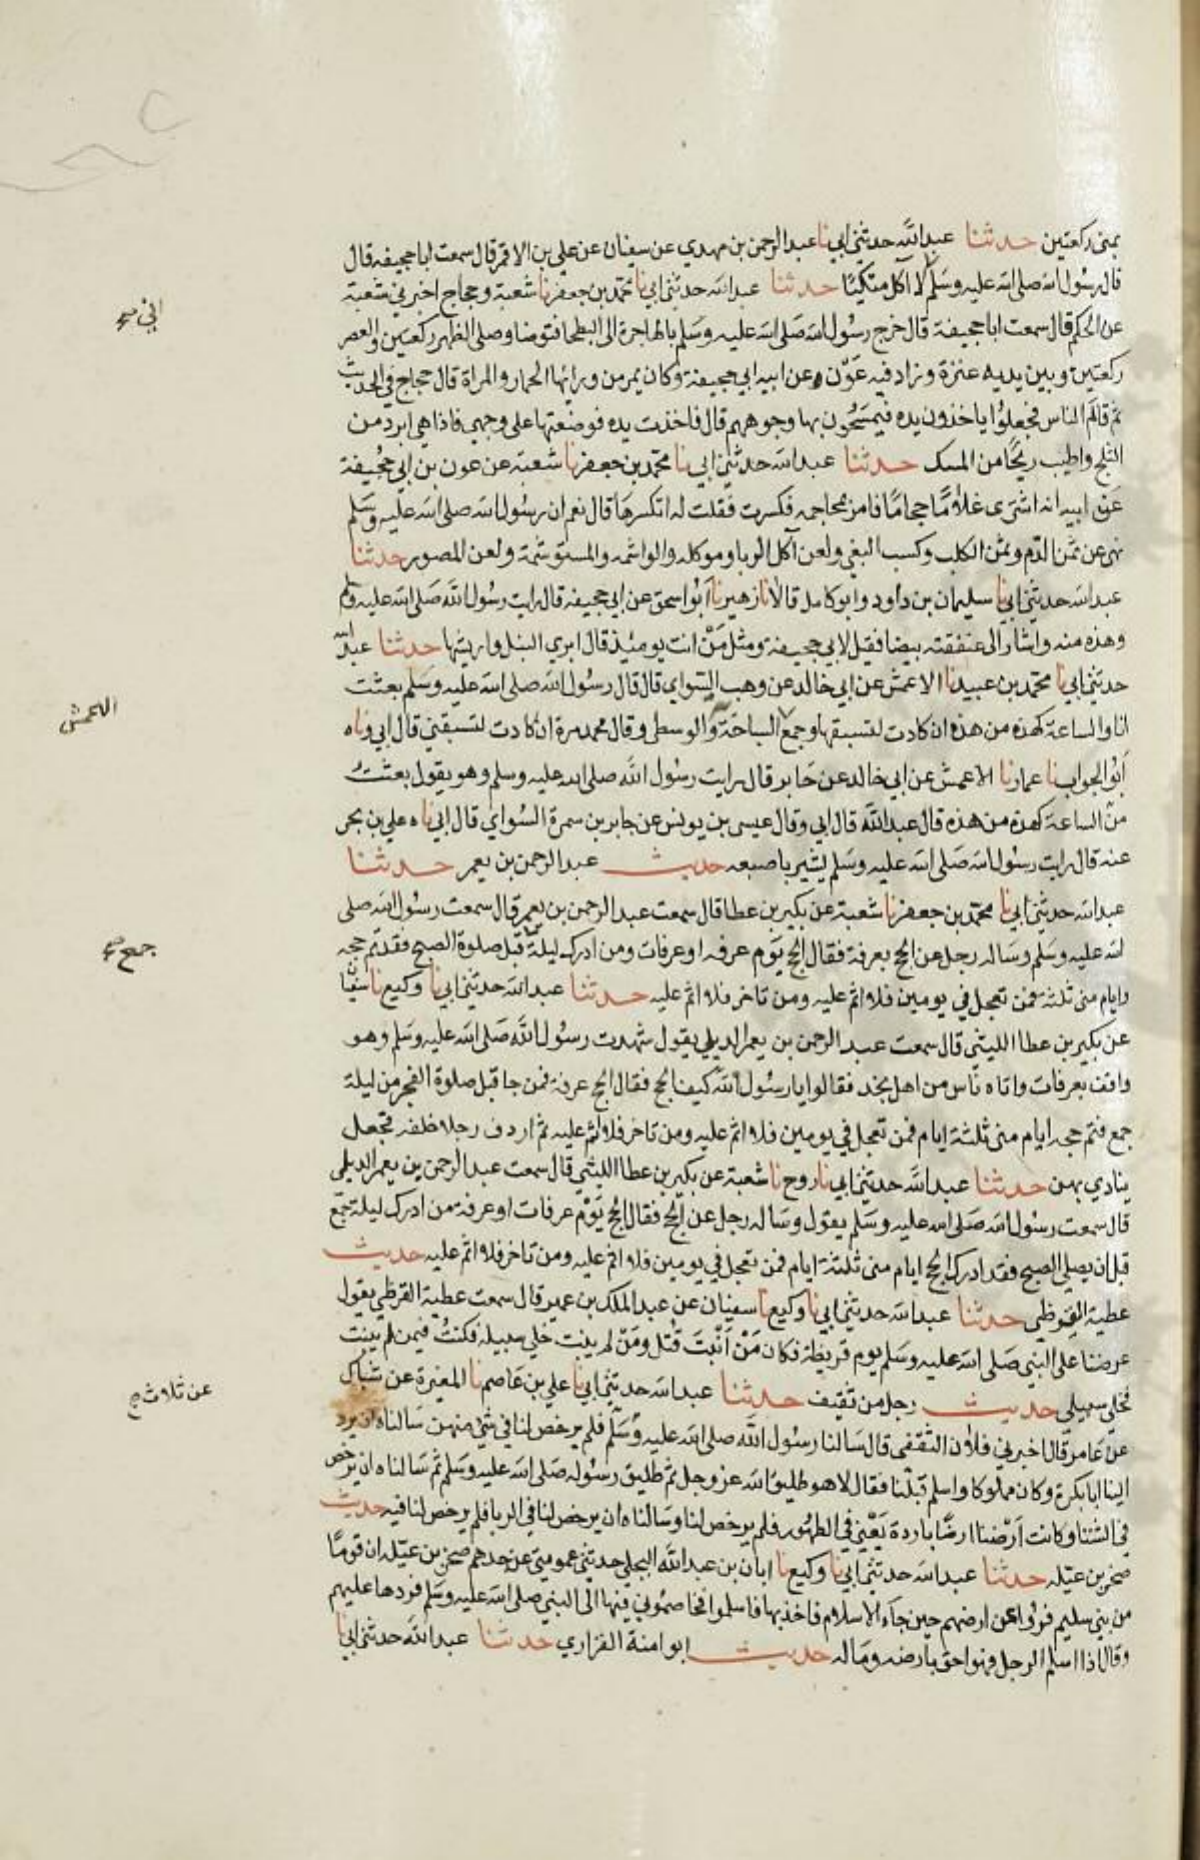 بمنى ركعتين حدثنا عبد الله حدثني ابي نا عبد الرحمن بن مهدي عن سفيان عن علي بن الاقمر قال سمعت ابا جحيفه قال
قال رسول الله صلى الله عليه وسلم لا اكل متكيا حدثنا عبد الله حدثني ابي نا محمد بن جعفر نا شعبة وحجاج اخبرني شعبة
عن الحكم قال سمعت ابا جحيفة قال خرج رسول الله صلى الله عليه وسلم بالهاجرة الى البطحا فتوضا وصلى الظهر ركعتين والعصر
ركعتين وبين يديه عنزة وزاد فيه عون عن ابيه ابي جحيفة وكان يمر من ورائها الحمار والمراة قال حجاج في الحديث
ثم قام الناس فجعلوا ياخذون يده فيمسحون بها وجوههم قال فاخذت يده فوضعتها على وجهي فاذا هي ابرد من
الثلج واطيب ريحا من المسك حدثنا عبد الله حدثني ابي نا محمد بن جعفر نا شعبة عن عون بن ابي جحيفة
عن ابيه انه اشترى غلاما حجاما فامر بمحاجمه فكسرت فقلت له اتكسرها قال نعم ان رسول الله صلى الله عليه وسلم
نهى عن ثمن الدم وثمن الكلب وكسب البغي ولعن آكل الربا وموكله والواشمه والمستوشمة ولعن المصور حدثنا
عبد الله حدثني ابي نا سليمان بن داود وابو كامل قالا نا زهير نا ابو اسحق عن ابي جحيفه قال رايت رسول الله صلى الله عليه وسلم
وهذه منه واشار الى عنفقته بيضا فقيل لابي جحيفة ومثل من انت يوميذ قال ابري النبل واريشها حدثنا عبد الله
حدثني ابي نا محمد بن عبيد نا الاعمش عن ابي خالد عن وهب السواي قال قال رسول الله صلى الله عليه وسلم بعثت
انا والساعة كهذه من هذه ان كادت لتسبقها وجمع السباحة والوسطى وقال محمد مرة ان كادت لتسبقني قال ابي وناه
ابو الجواب نا عمار نا الاعمش عن ابي خالد عن جابر قال رايت رسول الله صلى الله عليه وسلم وهو يقول بعثت
من الساعة كهذه من هذه قال عبد الله قال ابي وقال عيسى بن يونس عن جابر بن سمرة السواي قال ابي ناه علي بن بحر
عنه قال رايت رسول الله صلى الله عليه وسلم يشير باصبعه حديث عبد الرحمن بن يعمر حدثنا
عبد الله حدثني ابي نا محمد بن جعفر نا شعبة عن بكير بن عطا قال سمعت عبد الرحمن بن يعمر قال سمعت رسول الله صلى
الله عليه وسلم وساله رجل عن الحج بعرفة فقال الحج يوم عرفه او عرفات ومن ادرك ليلة قبل صلوة الصبح فقد تم حجه
وايام منى ثلثة فمن تعجل في يومين فلا اثم عليه ومن تاخر فلا اثم عليه حدثنا عبد الله حدثني ابي نا وكيع نا سفيان
عن بكير بن عطا الليثي قال سمعت عبد الرحمن بن يعمر الديلي يقول شهدت رسول الله صلى الله عليه وسلم وهو
واقف بعرفات واتاه ناس من اهل نجد فقالوا يا رسول الله كيف الحج فقال الحج عرفة فمن جا قبل صلوة الفجر من ليلة
جمع فتم حجه ايام منى ثلثة ايام فمن تعجل في يومين فلا اثم عليه ومن تاخر فلا اثم عليه ثم اردف رجلا خلفه فجعل
ينادي بهن حدثنا عبد الله حدثني ابي نا روح نا شعبة عن بكير بن عطا الليثي قال سمعت عبد الرحمن بن يعمر الديلي
قال سمعت رسول الله صلى الله عليه وسلم يقول وساله رجل عن الحج فقال الحج يوم عرفات او عرفة من ادرك ليلة جمع
قبل ان يصلي الصبح فقد ادرك الحج ايام منى ثلثة ايام فمن تعجل في يومين فلا اثم عليه ومن تاخر فلا اثم عليه حديث
عطية القرظي حدثنا عبد الله حدثني ابي نا وكيع نا سفيان عن عبد الملك بن عمير قال سمعت عطية القرظي يقول
عرضنا على النبي صلى الله عليه وسلم يوم قريظة فكان من انبت قتل ومن لم ينبت خلي سبيله فكنت فيمن لم ينبت
فخلي سبيلي حديث رجل من ثقيف حدثنا عبد الله حدثني ابي نا علي بن عاصم نا المغيرة عن شباك
عن عامر قال اخبرني فلان الثقفي قال سالنا رسول الله صلى الله عليه وسلم فلم يرخص لنا في شي منهن سالناه ان يرد
الينا ابا بكرة وكان مملوكا واسلم قبلنا فقال لا هو طليق الله عز وجل ثم طليق رسوله صلى الله عليه وسلم ثم سالناه ان يرخص
في الشتا وكانت ارضنا ارضا باردة يعني في الطهور فلم يرخص لنا وسالناه ان يرخص لنا في الربا فلم يرخص لنا فيه حديث
صخر بن عيله حدثنا عبد الله حدثني ابي نا وكيع نا ابان بن عبد الله البجلي حدثني عمومتي عن جدهم صخر بن عيله ان قوما
من بني سليم فروا عن ارضهم حين جاء الاسلام فاخذتها فاسلموا فخاصموني فيها الى النبي صلى الله عليه وسلم فردها عليهم
وقال اذا اسلم الرجل فهو احق بارضه وماله حديث ابو امنة الفزاري حدثنا عبد الله حدثني ابي نا
جمع صح
عن ثلاث صح